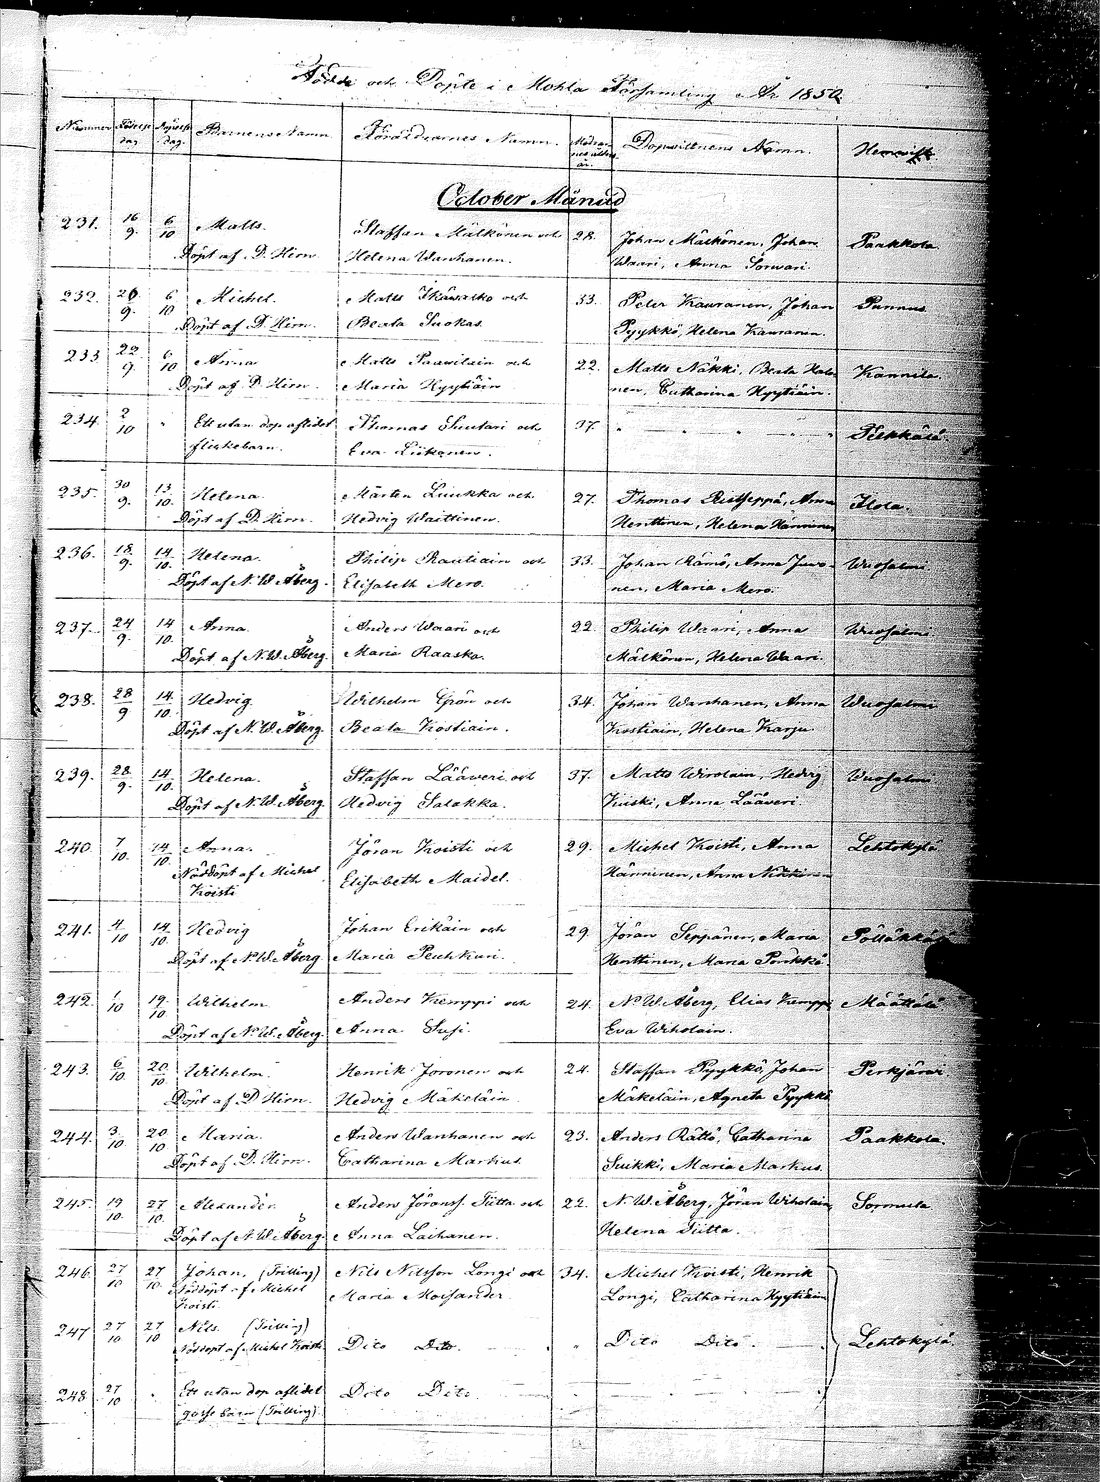 Födde och Döpte i Mohla Församling År 1850
Nummer Födelse dag Döpelse dag. Barnens Namn Föräldrarnes Namn. Mödrarnes ålders år. Dopvittnens Namn. Hemvist.
October Månad
231. 16/9. 6/10 Matts. Staffan Mälkönen och 28. Johan Mälkönen, Johan Paakkola
Döpt af D. Hirn Helena Wanhanen. Waari, Anna Sorvari.
232. 20/9. 6/10 Michel. Matts Ikäwalko och 33. Peter Kauranen, Johan Punnus
Döpt af D. Hirn. Beata Suokas. Pyykkö, Helena Kauranen.
233 22/9. 6/10 Anna Matts Paawilain och 22. Matts Näkki, Beata Hata Kannila.
Döpt af D. Hirn. Maria Hyytiäin nen, Catharina Hyytiäin.
234. 2/10 " Ett utan dop aflidet Thomas Suutari och 37. " " " "
flickebarn. Eva Liikanen.
235. 30/9. 13/10. Helena. Mårten Luukka och 27. Thomas Anna Ilola.
Döpt af D. Hirn. Hedvig Waittinen. Henttinen, Helena Hänninen
236. 18/9. 14/10. Helena. Philip Rautiain och 33. Johan Rämö, Anna Juvo- Wuosalmi
Döpt af N. W. Åberg. Elisabeth Mero. nen, Maria Mero.
237. 24/9. 14/10. Anna. Anders Waari och 22. Philip Waari, Anna Wuosalmi
Döpt af N. W. Åberg. Maria Raaska. Mälkönen, Helena Waari.
238. 28/9 14/10. Hedvig. Wilhelm Grön och 34. Johan Wanhanen, Anna Wuosalmi
Döpt af N. W. Åberg. Beata Kostiain. Kostiain, Helena Karju.
239. 28/9. 14/10. Helena. Staffan Lääveri och 37. Matts Wirolain, Hedvig Wuosalmi
Döpt af N. W. Åberg. Hedvig Salakka. Kuiski, Anna Lääveri.
240. 7/10. 14/10. Anna. Jöran Koisti och 29. Michel Koisti, Anna Lehtokylä
Nöddöpt af Michel Elisabeth Maidel. Hänninen, Anna
Koisti
241. 4/10 14/10. Hedvig Johan Erikäin och 29. Jöran Seppänen, Maria
Döpt af N. W. Åberg Maria Peuhkuri. Henttinen, Maria Ponkkö.
242. 1/10 19/10. Wilhelm Anders Kemppi och 24. N. W. Åberg, Elias Kemppi, Määttälä
Döpt af N. W. Åberg. Anna Susi. Eva Wiholain.
243. 6/10. 20/10. Wilhelm. Henrik Joronen och 24. Staffan Pyykkö, Johan Perkjärvi
Döpt af D Hirn. Hedvig Mäkeläin. Mäkeläin, Agneta Pyykkö
244. 3/10 20/10 Maria. Anders Wanhanen och 23. Anders Rättö, Catharina Paakkola.
Döpt af D. Hirn. Catharina Markus. Suikki, Maria Markus.
245. 19/10. 27/10. Alexander. Anders Jöranss. Tiitta och 22. N. W. Åberg, Jöran Wiholain, Sormula
Döpt af N. W. Åberg. Anna Laihanen. Helena Tiitta.
246 27/10 27/10. Johan, (Trilling) Nils Nilsson Longi och 34. Michel Koisti, Henrik
Nöddöpt af Michel Maria Moisander. Longi, Catharina Hyytiäin
Koisti.
247 27/10 27/10 Nils. (Trilling) Dito Dito. " Dito Dito. Lehtokylä
Nöddöpt af Michel Koisti
248. 27/10 " Ett utan dop aflidet Dito Dito.
gosse barn (Trilling)